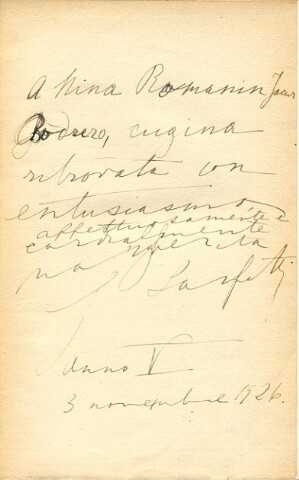 A Nina Romanin Jacur
Bodrero, cugina
ritrovata con
entusiasmo,
affettuosamente e
cordialmente
Margherita
Sarfatti
Anno V
3 novembre 1926.